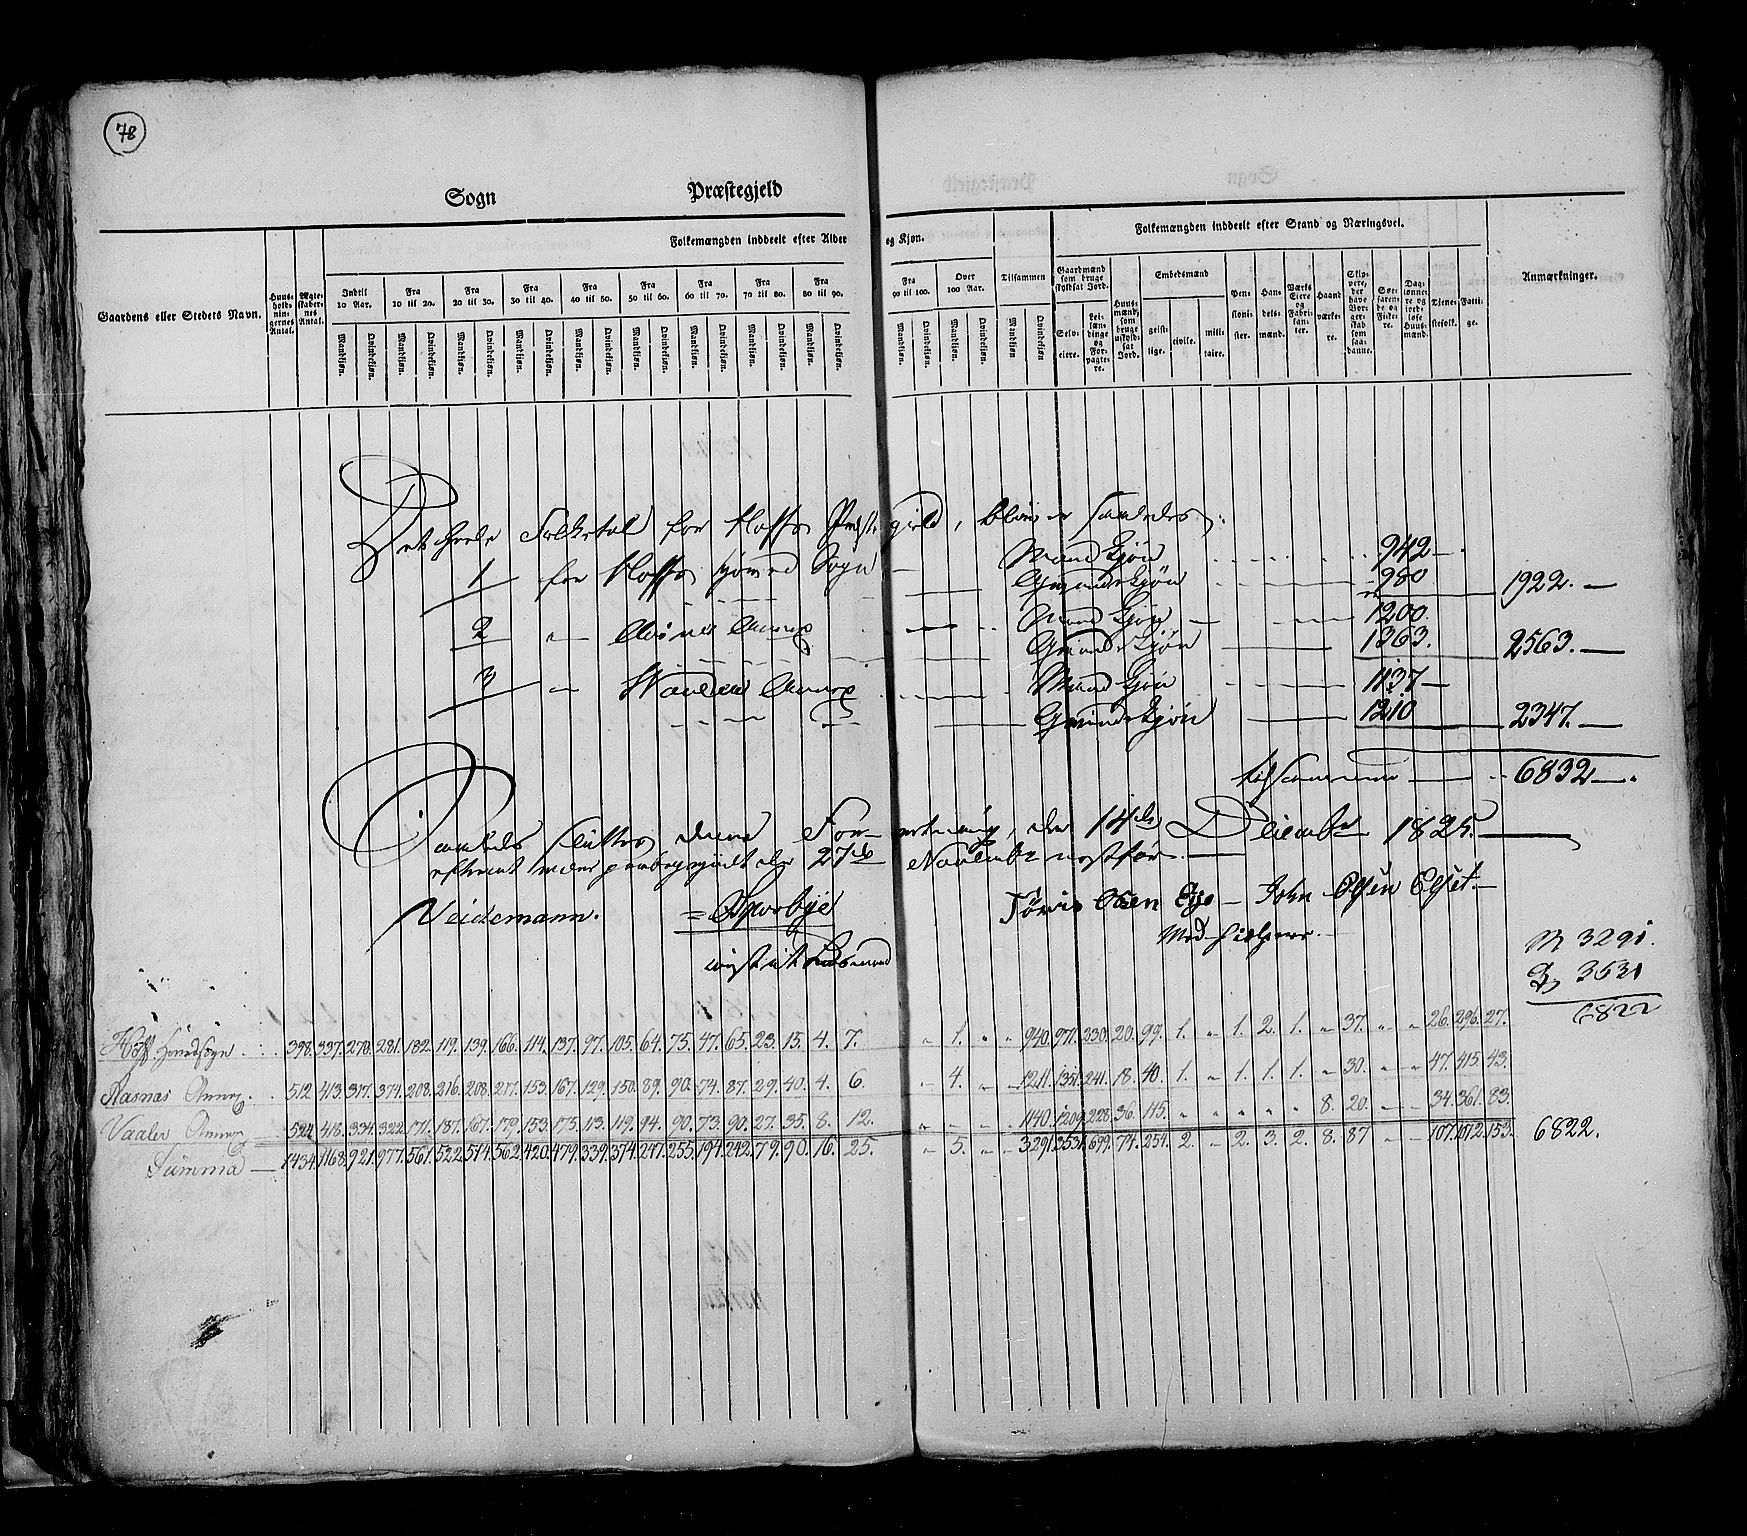 78
Sogn Præstegjeld
Folkemængden inddeelt efter Alder og Kjøn.
Folkemængden inddeelt efter Stand og Næringsvei.
Gaardens eller Stedets Navn.
Huusholdningernes Antal.
Ægteskabernes Antal.
Indtil 10 Aar.
Fra 10 til 20.
Fra 20 til 30.
Fra 30 til 40.
Fra 40 til 50.
Fra 50 til 60.
Fra 60 til 70.
Fra 70 til 80.
Fra 80 til 90.
Fra 90 til 100.
Over 100 Aar.
Tilsammen
Mandkjøn. Qvindekjøn. Mandkjøn. Qvindekjøn. Mandkjøn. Qvindekjøn. Mandkjøn. Qvindekjøn. Mandkjøn. Qvindekjøn. Mandkjøn. Qvindekjøn. Mandkjøn. Qvindekjøn. Mandkjøn. Qvindekjøn. Mandkjøn. Qvindekjøn. Mandkjøn. Qvindekjøn. Mandkjøn. Qvindekjøn. Mandkjøn Qvindekjøn
Gaardmænd som bruge skyldsat Jord.
Selveiere.
Leilændinge og Forpagtere.
Huusmænd, som bruge uskyldsat Jord.
Embedsmænd
geistlige.
civile.
militaire.
Pensionister.
Handelsmænd.
Værks Eiere og Fabrikanter.
Haandværkere.
Skippere, der have Borgerskab som saadanne.
Søefarende og Fiskere.
Daglønnere og jordløse Huusmænd.
Tjenestefolk.
Fattige.
Anmærkninger.
Det heele Folketal for Hoffs Præstegjeld, bliver saaledes:
1 for Hoffs Hoved Sogn Mandkjøn 942
Qvindekjøn 980 1922.
2 Aasnes Annex Mandkjøn 1200
Qvindekjøn 1363. 2563.
3 Vaaler Annex Mandkjøn 1137
Qvindekjøn 1210 2347.
tilsammen 6832
Saaledes sluttes denne Forretning, den 14de December 1825.
27de November
Veidemann. Olsen John Olsen
Medhielpere.
M 3291.
Q 3531
6822
Hoff Hovedsogn. 398. 337. 270. 281. 182. 119. 139. 166. 114. 137. 97. 105. 64. 75. 47. 65. 23. 15. 4. 7. " 1. " " 940. 971. 230. 20. 99. 1. " 1. 2. 1. " 37. " " 26. 296. 27.
Aasnæs Annex. 512. 413. 317. 374. 208. 216. 208. 217. 153. 167. 129. 150. 89. 90. 74. 87. 29. 40. 4. 6. " 4. " " 1211. 1351. 241. 18. 40. 1. " 1. 1. 1. " 30. " " 47. 415. 43.
Vaaler Annex 524. 418. 334. 322. 171. 187. 167. 179. 153. 175. 13. 119. 94. 90. 73. 90. 27. 35. 8. 12. " " " " 1140. 1209. 228. 36. 115. " " " " " 8. 20. " " 34. 361. 83.
Summa 1434. 1168. 921. 977. 561. 522. 514. 562. 420. 479. 339. 374. 247. 255. 194. 242. 79. 90. 16. 25. " 5. " " 3291. 3531. 699. 74. 254. 2. " 2. 3. 2. 8. 87 " " 107. 1072. 153. 6822.